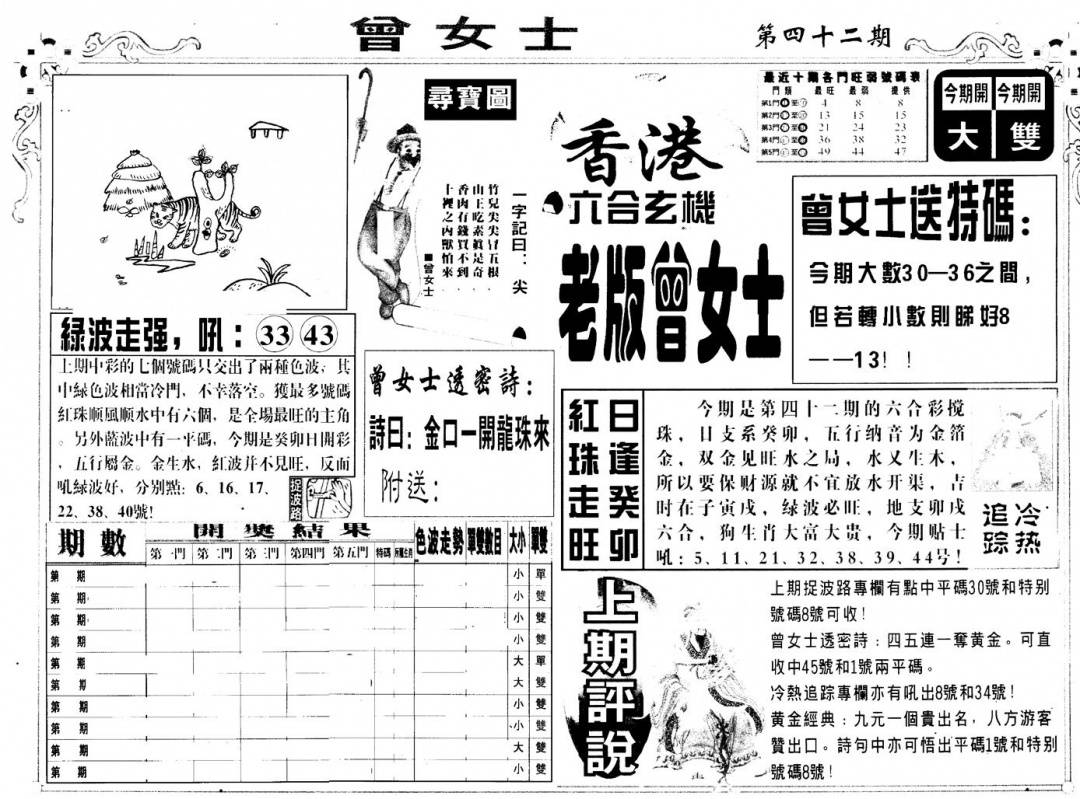 曾女士
第四十二期
尋寶圖
一字記曰：尖
竹兒尖尖冒五根
山王吃素眞是奇
香肉有錢買不到
十裡之內獸怕來
■曾女士
香港
六合玄機
老版曾女士
最近十期各門旺弱號碼表
門類 最旺 最弱 提供
第1門 至 4 8 8
第2門 至 13 15 15
第3門 至 21 24 23
第4門 至 36 38 32
第5門 至 49 44 47
今期開 今期開
大 雙
曾女士送特碼：
今期大數30—36之間，
但若轉小數則睇好8
——13！！
綠波走强，吼：33 43
上期中彩的七個號碼只交出了兩種色波，其
中綠色波相當冷門，不幸落空。獲最多號碼
紅珠顺風顺水中有六個，是全場最旺的主角
。另外藍波中有一平碼，今期是癸卯日開彩
，五行屬金。金生水，紅波并不見旺，反而
吼綠波好，分别點：6、16、17、
22、38、40號!
捉波路
曾女士透密詩：
詩曰：金口一開龍珠來
附送：
日逢癸卯
紅珠走旺
今期是第四十二期的六合彩搅
珠，日支系癸卯，五行纳音为金箔
金，双金见旺水之局，水又生木，
所以要保财源就不宜放水开渠，吉
时在子寅戌，绿波必旺，地支卯戌
六合，狗生肖大富大贵，今期贴士
吼：5、11、21、32、38、39、44号！
冷热
追踪
期數
開獎結果
色波走勢
單雙數目
大小
單雙
第一門 第二門 第三門 第四門 第五門 特碼
第 期 小 單
第 期 小 雙
第 期 小 雙
第 期 小 雙
第 期 大 單
第 期 大 雙
第 期 小 雙
第 期 小 雙
第 期 大 雙
第 期 小 雙
上期評說
上期捉波路專欄有點中平碼30號和特别
號碼8號可收!
曾女士透密詩：四五連一奪黃金。可直
收中45號和1號兩平碼。
冷熱追踪專欄亦有吼出8號和34號!
黄金經典：九元一個貴出名，八方游客
贊出口。詩句中亦可悟出平碼1號和特别
號碼8號!